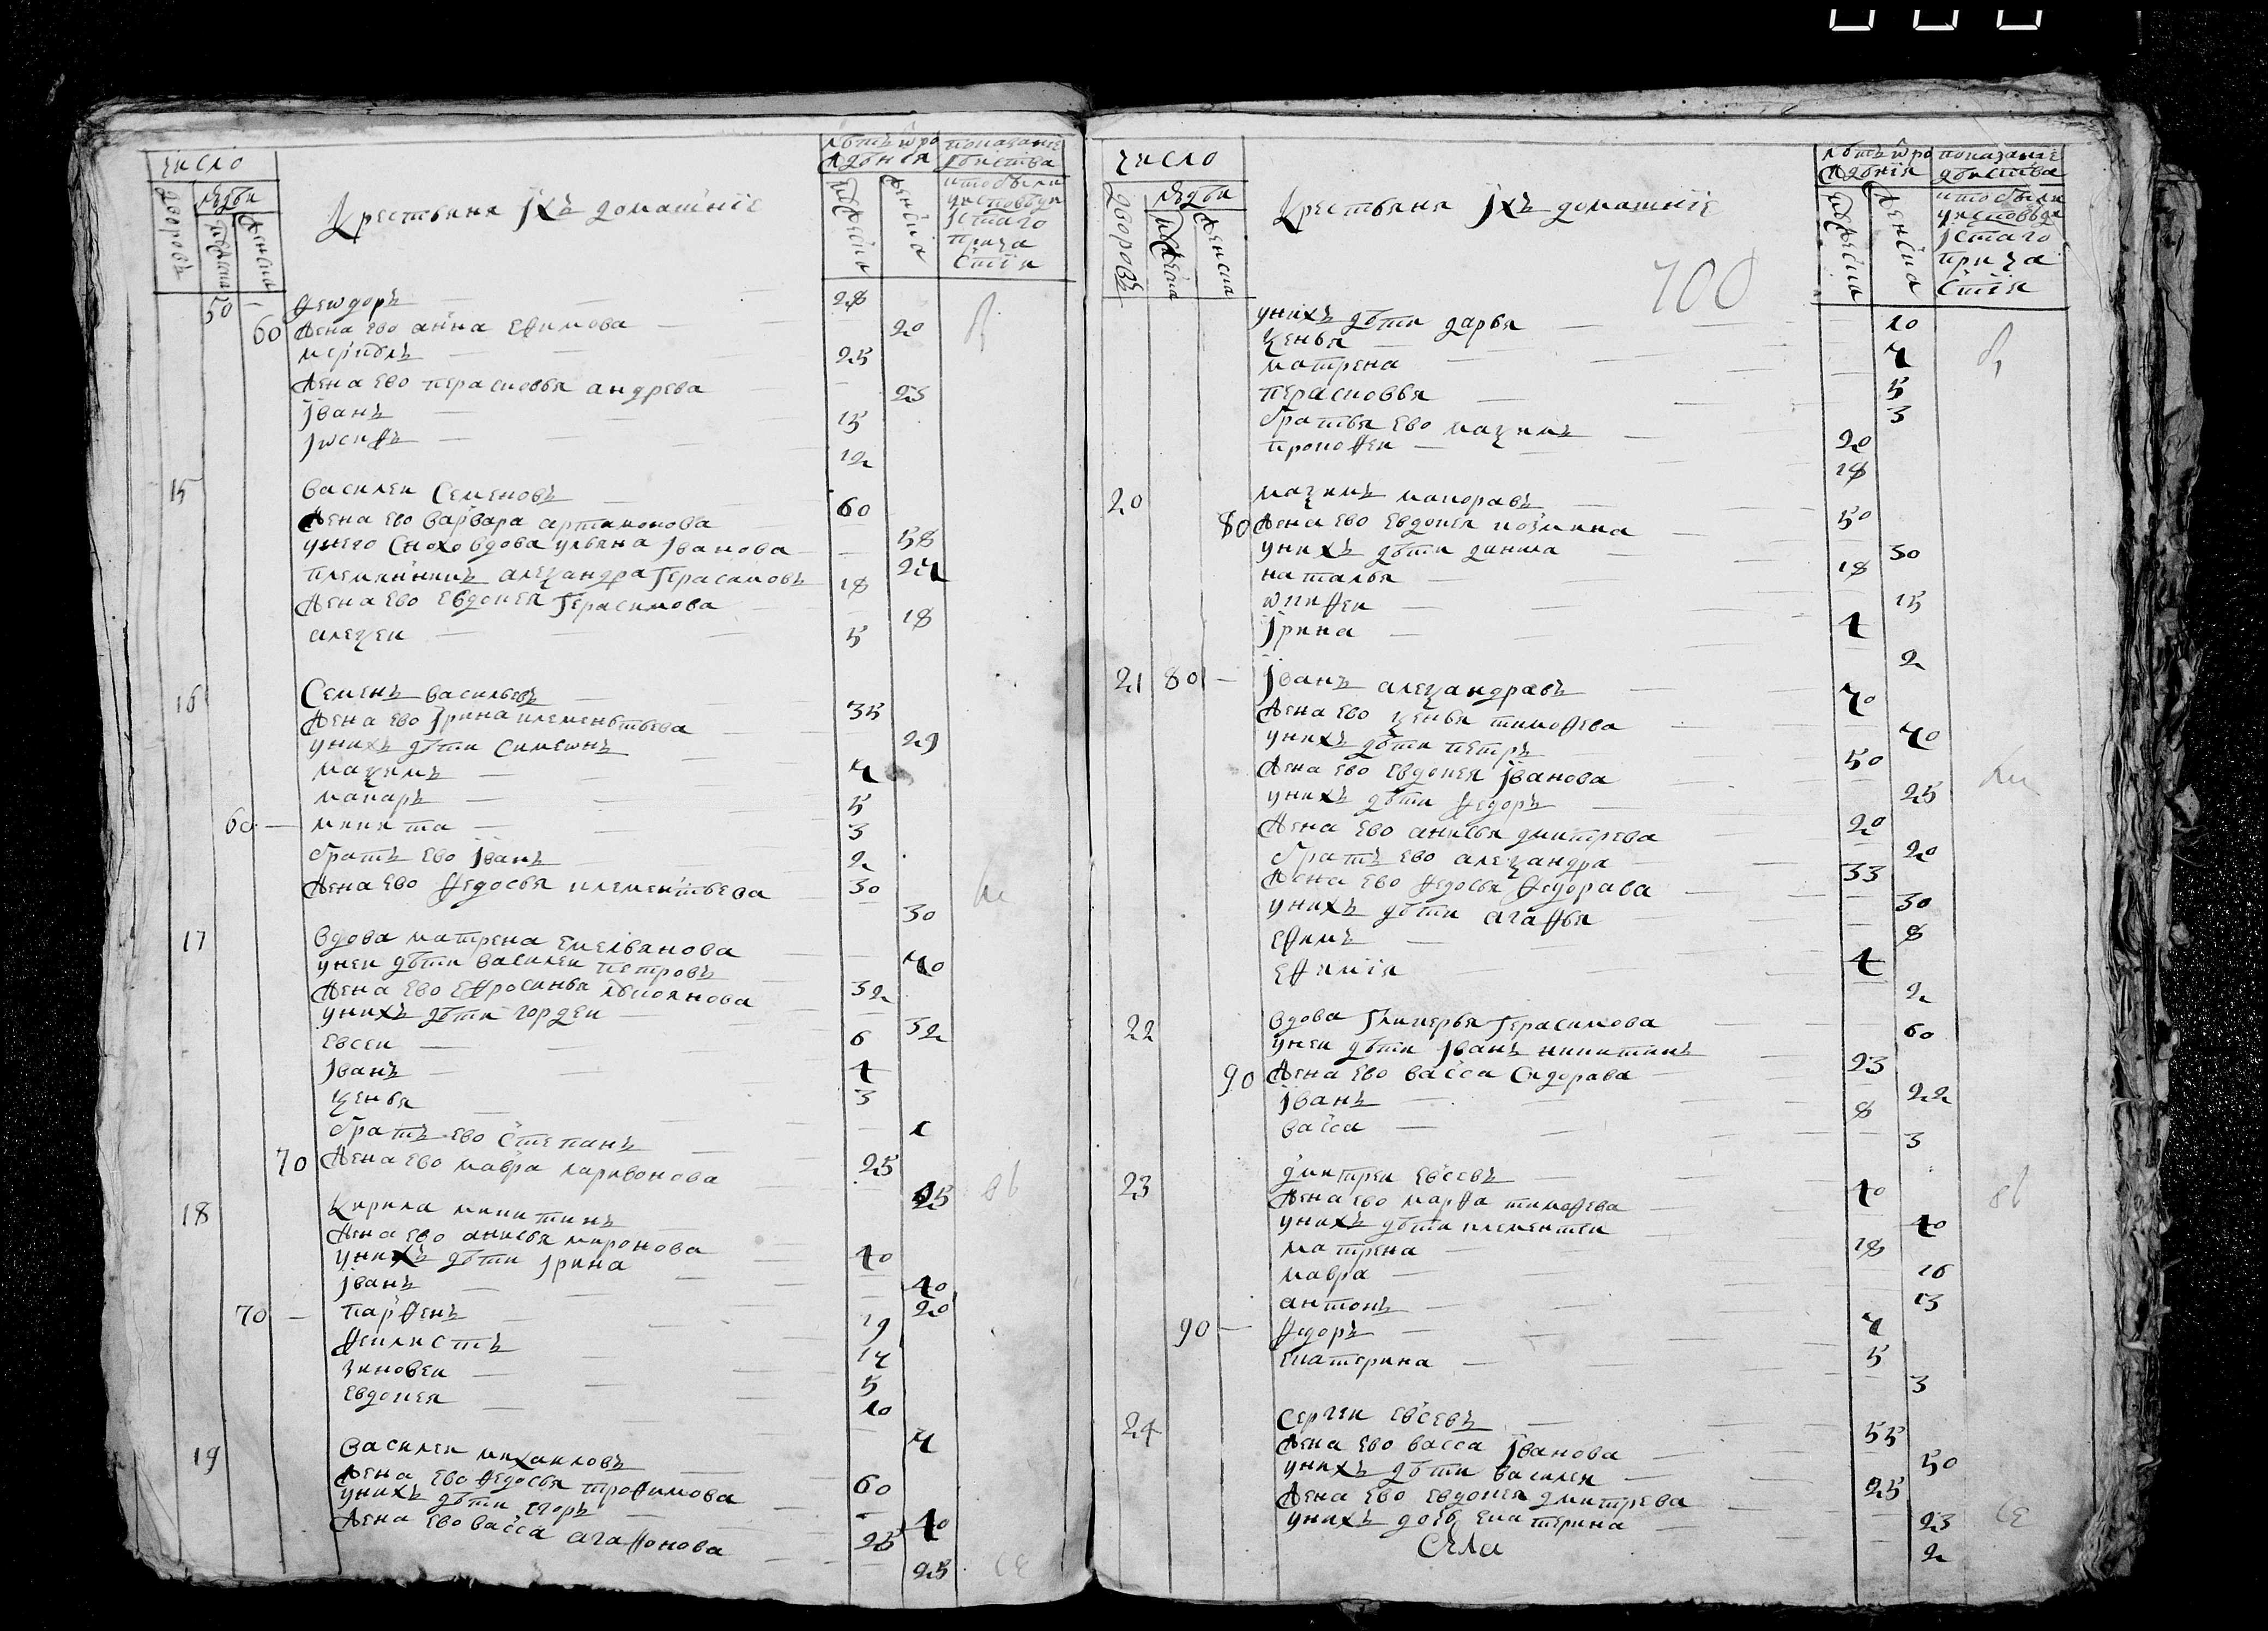 число
дворовъ
людеи
мужеска
женска
Крестьяня јхъ домашніе
лѣтъ ѿ ро
жденія
мужеска
женска
показаніе
дѣиства
кто были
уисповѣди
јстаго
прича
стія
50 — Феѡдоръ — 28
60 Жена ево анна Ефимова — 20
Жена ево перасковья андрева — 23
јванъ — 15
јѡсифъ — 12
15 Василеи Семеновъ — 60
Жена ево варвара артамонова — 58
унего Сноха вдова ульяна јванова — 27
племянникъ алеѯандра Герасимовъ 18
Жена ево Евдокея Герасимова — 18
алеѯеи — 5
16 Семенъ васильевъ — 35
Жена ево јрина клементьева — 29
унихъ дѣти Симеѡнъ — 7
маѯимъ — 5
макаръ — 3
60 — никита — 2
братъ ево јванъ — 30
Жена ево Федосья клементьева — 30
17 вдова матрена Емелѣванова — 70
унеи дѣти василеи петровъ — 32
Жена ево Ефросинья — 32
унихъ дѣти гордеи — 6
Евсеи — 4
јванъ — 3
ѯенья — 1
братъ ево Степанъ — 25
70 Жена ево мавра ларивонова — 25
18 Кирила никитинъ — 40
Жена ево анисья миронова — 40
унихъ дѣти јрина — 20
јванъ — 19
70 — парфенъ — 14
Феклистъ — 5
зиновеи — 10
Евдокея — 7
19 Василеи михаиловъ — 60
Жена ево Федосья трофимова — 40
унихъ дѣти Егоръ — 25
Жена ево васса агафонова — 25
число
дворовъ
людеи
мужеска
женска
Крестьяня јхъ домашніе
700
лѣтъ ѿ ро
жденія
мужеска
женска
показаніе
дѣиства
кто были
уисповѣди
јстаго
прича
стія
унихъ дѣти дарья — 10
ѯенья — 7
матрена — 5
перасковья — 3
братья ево маѯимъ — 20
прокофеи — 18
20 маѯимъ макоравъ — 50
80 Жена ево Евдокея козмина — 30
унихъ дѣти данила — 18
наталья — 15
ѡкифеи — 4
јрина — 2
21 80 — јванъ алеѯандравъ — 70
Жена ево ѯенья тимофева — 70
унихъ дѣти петръ — 50
Жена ево Евдокея јванова — 25
унихъ дѣти Федоръ — 20
Жена ево анисья дмитрева — 20
братъ ево алеѯандра — 33
Жена ево Федосья Федорава — 30
унихъ дѣти агафья — 8
Ефимъ — 4
Ефимія — 2
22 вдова Гликерья Герасимова — 60
унеи дѣти јванъ никитинъ — 23
90 Жена ево васса Сидорава — 22
јванъ — 8
васса — 3
23 дмитреи Евсевъ — 40
Жена ево марфа тимофева — 40
унихъ дѣти клементеи — 18
матрена — 16
мавра — 13
антонъ — 7
90 — Федоръ — 5
Екатерина — 3
24 Сергеи Евсевъ — 55
Жена ево васса јванова — 50
унихъ дѣти василеи — 25
Жена ево Евдокея дмитрева — 23
унихъ дочь Екатерина — 2
Села